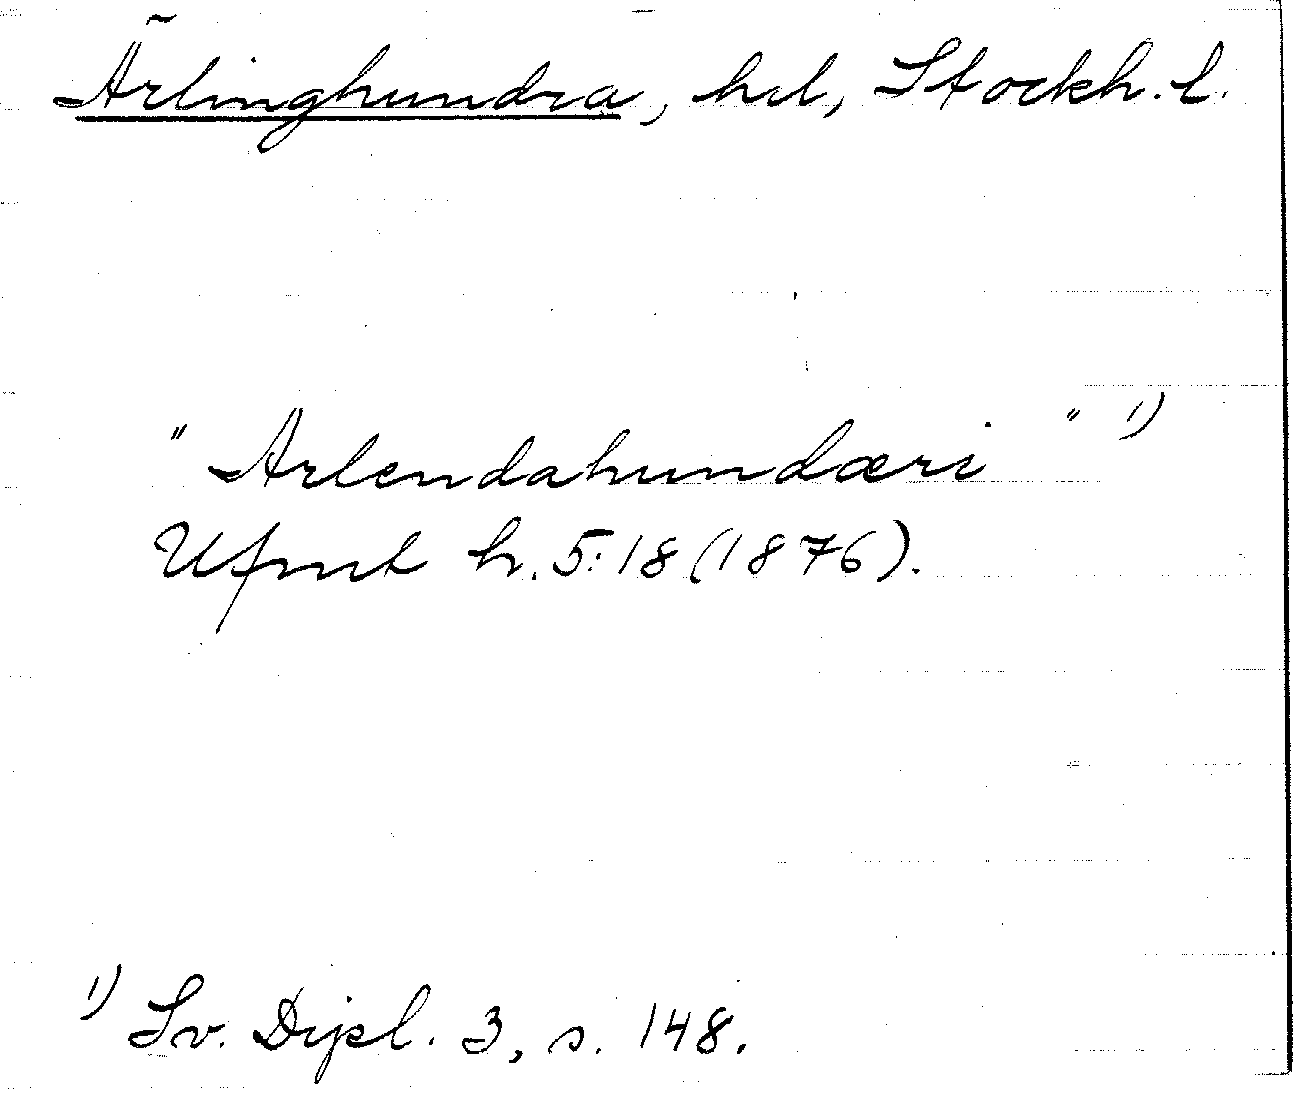 Ärlinghundra, hd, Stockh. l.
"Arlendahundæri" 1)
Ufmt h. 5:18 (1876).
1) Sv. Dipl. 3, s. 148.